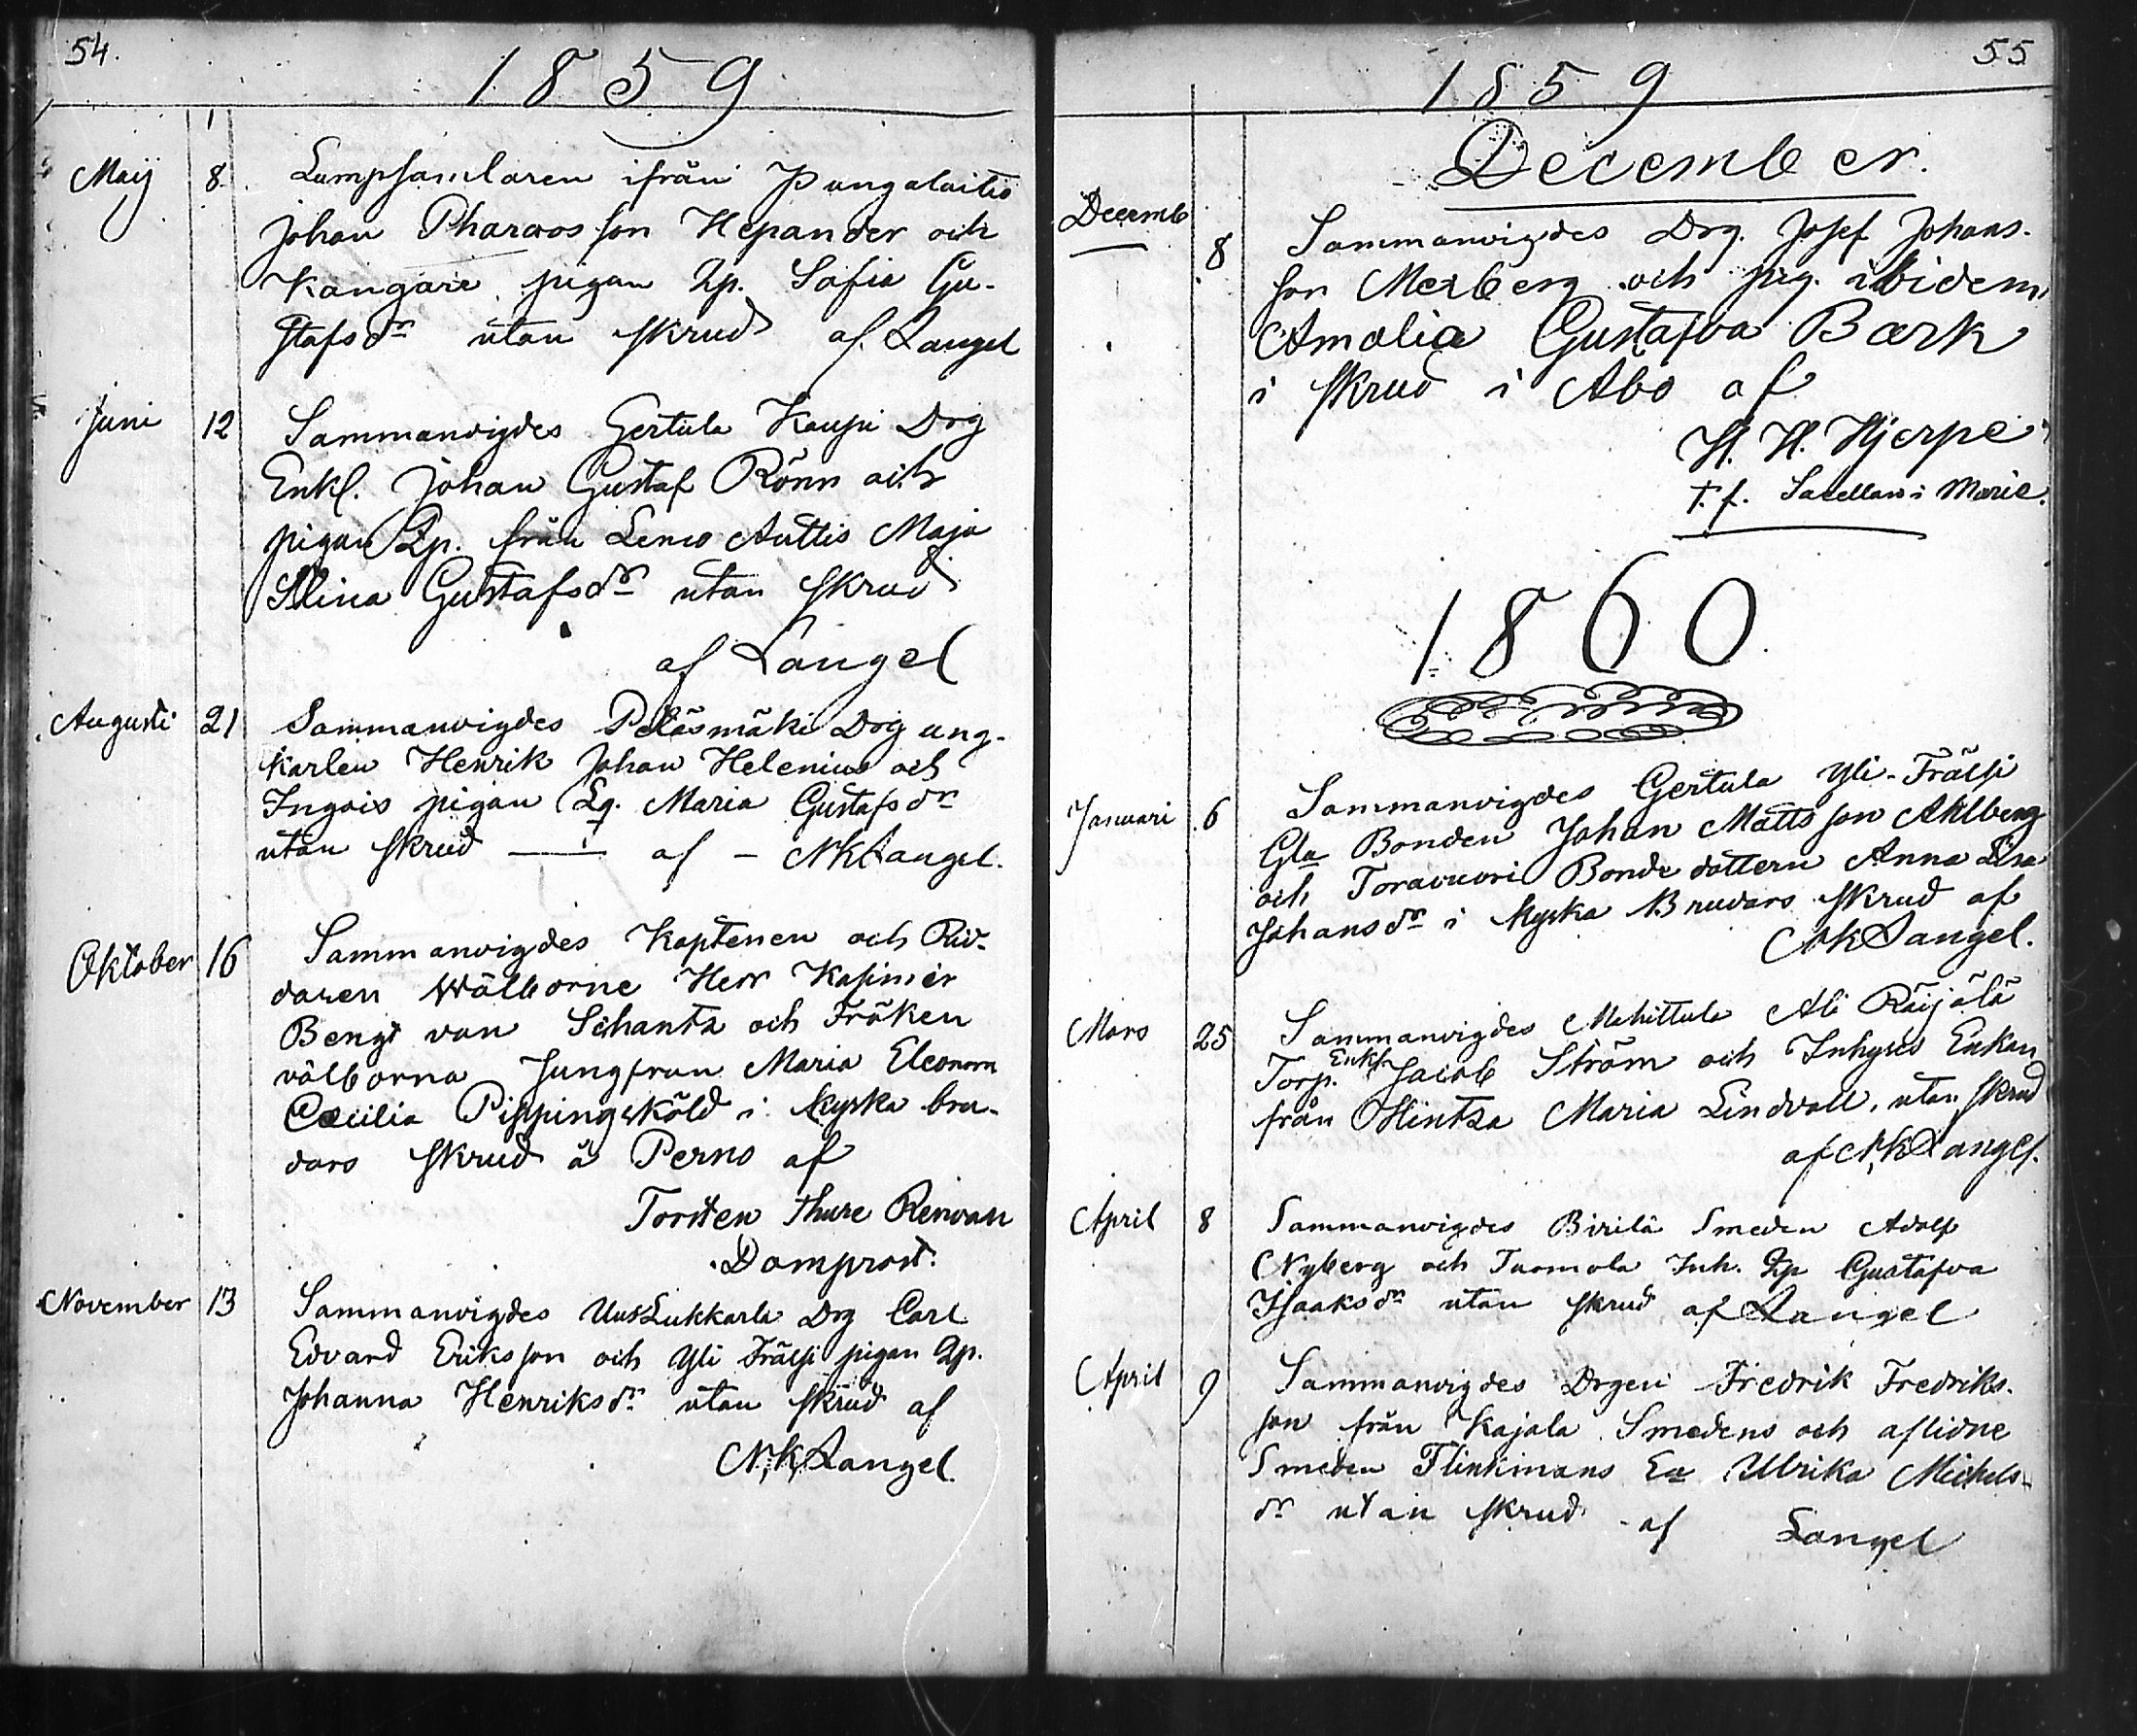 54.
1859
Maij 8. Lumpsamlaren ifrån Pungalaitio
Johan Pharaos son Hepander och
Kangare pigan Qp. Sofia Gu-
stafsdr utan skrud af Langel
Juni 12 Sammanvigdes Gertula Kaupi Drg
Enkl. Johan Gustaf Rönn och
pigan Qp. från Lemo Anttis Maja
Stina Gustafsdr utan skrud
af Langel
Augusti 21 Sammanvigdes Peläsmäki Drg ung-
karlen Henrik Johan Helenius och
Ingois pigan Lq. Maria Gustafsdr
utan skrud — af – NKLangel.
Oktober 16 Sammanvigdes Kaptenen och Rid-
daren Wälborne Herr Kasimir
Bengt von Schantz och Fröken
välborna Jungfrun Maria Eleonora
Cæcilia Pippingsköld i kyska bru-
dars skrud å Perno af
Torsten Thure Renvall
Domprost.
November 13 Sammanvigdes Uus Lukkarla Drg Carl
Edvard Eriksson och Yli Frälsi pigan Qp.
Johanna Henriksdr utan skrud af
N.K.Langel.
55
1859
December.
Decemb 8 Sammanvigdes Drg. Josef Johans-
son Merberg och pig. ibidem
Amalia Gustafva Bærk
i skrud i Åbo af
H. H. Hjerpe
t. f. Sacellan i Marie.
1860
Januari 6 Sammanvigdes Gertula Yli-Frälsi
Gla Bonden Johan Matts son Ahlberg
och Toravuori Bonde dottern Anna Lisa
Johansdr i kyska Brudars skrud af
NKLangel.
Mars 25 Sammanvigdes Mahittula Ali Räijälä
Torp. Enkl. Jacob Ström och Inhyses Enkan
från Hintsa Maria Lindvall, utan skrud
af N.K.Langel.
April 8 Sammanvigdes Birilä Smeden Adolf
Nyberg och Tuomola Inh. Qp Gustafva
Isaaksdr utan skrud af Langel
April 9 Sammanvigdes Drgen Fredrik Fredriks-
son från Kajala Smedens och aflidne
Smeden Flinkmans Ea Ulrika Michels-
dr utan skrud af Langel